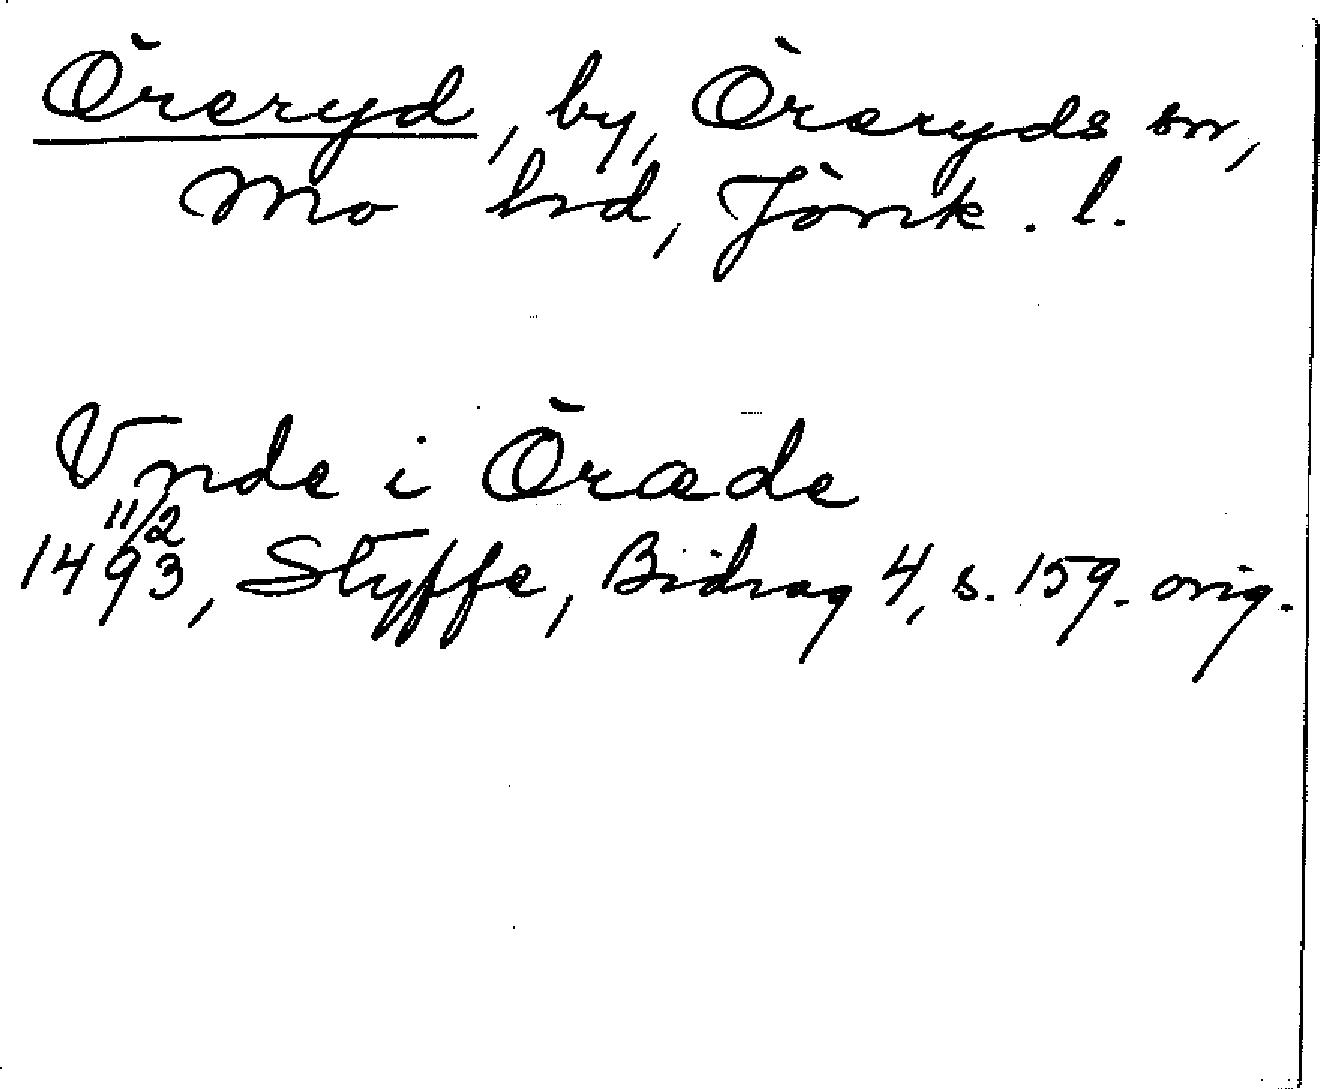 Öreryd, by, Öreryds sn,
Mo hd, Jönk. l.
Vnde i Öræde
11/2
1493, Styffe, Bidrag 4, s. 159. orig.